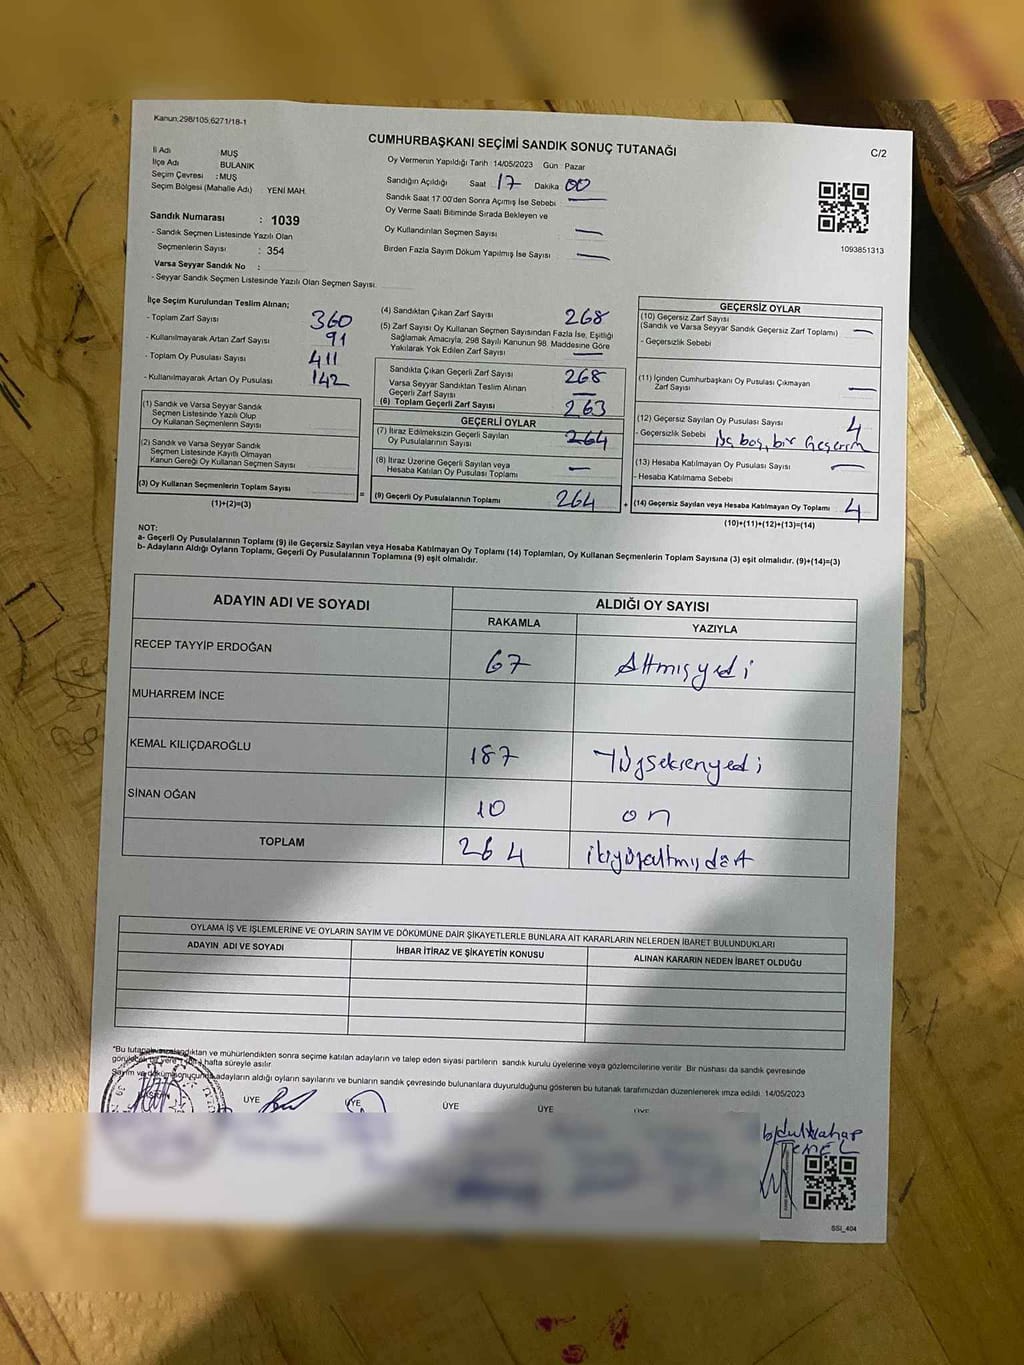 Kanun,298/105,6271/18-1
CUMHURBAŞKANI SEÇİMİ SANDIK SONUÇ TUTANAĞI
C/2
İl Adı MUŞ
İlçe Adı BULANIK
Seçim Çevresi : MUŞ
Seçim Bölgesi (Mahalle Adı) YENİ MAH.
Sandık Numarası : 1039
- Sandık Seçmen Listesinde Yazılı Olan
Seçmenlerin Sayısı : 354
Varsa Seyyar Sandık No :
- Seyyar Sandık Seçmen Listesinde Yazılı Olan Seçmen Sayısı:
Oy Vermenin Yapıldığı Tarih :14/05/2023 Gün Pazar
Sandığın Açıldığı Saat 17 Dakika 00
Sandık Saat 17:00'den Sonra Açımış İse Sebebi —
Oy Verme Saati Bitiminde Sırada Bekleyen ve
Oy Kullandırılan Seçmen Sayısı —
Birden Fazla Sayım Döküm Yapılmış İse Sayısı —
1093851313
İlçe Seçim Kurulundan Teslim Alınan;
- Toplam Zarf Sayısı 360
- Kullanılmayarak Artan Zarf Sayısı 91
- Toplam Oy Pusulası Sayısı 411
- Kullanılmayarak Artan Oy Pusulası 142
(1) Sandık ve Varsa Seyyar Sandık
Seçmen Listesinde Yazılı Olup
Oy Kullanan Seçmenlerin Sayısı
(2) Sandık ve Varsa Seyyar Sandık
Seçmen Listesinde Kayıtlı Olmayan
Kanun Gereği Oy Kullanan Seçmen Sayısı
(3) Oy Kullanan Seçmenlerin Toplam Sayısı
(1)+(2)=(3)
(4) Sandıktan Çıkan Zarf Sayısı 268
(5) Zarf Sayısı Oy Kullanan Seçmen Sayısından Fazla İse, Eşitliği
Sağlamak Amacıyla, 298 Sayılı Kanunun 98. Maddesine Göre
Yakılarak Yok Edilen Zarf Sayısı —
Sandıkta Çıkan Geçerli Zarf Sayısı 268
Varsa Seyyar Sandıktan Teslim Alınan
Geçerli Zarf Sayısı —
(6) Toplam Geçerli Zarf Sayısı 263
GEÇERLİ OYLAR
(7) İtiraz Edilmeksizin Geçerli Sayılan
Oy Pusulalarının Sayısı 264
(8) İtiraz Üzerine Geçerli Sayılan veya
Hesaba Katılan Oy Pusulası Toplamı —
= (9) Geçerli Oy Pusulalarının Toplamı 264
GEÇERSİZ OYLAR
(10) Geçersiz Zarf Sayısı
(Sandık ve Varsa Seyyar Sandık Geçersiz Zarf Toplamı) —
- Geçersizlik Sebebi
(11) İçinden Cumhurbaşkanı Oy Pusulası Çıkmayan
Zarf Sayısı —
(12) Geçersiz Sayılan Oy Pusulası Sayısı 4
- Geçersizlik Sebebi üç boş, bir
(13) Hesaba Katılmayan Oy Pusulası Sayısı —
- Hesaba Katılmama Sebebi
+ (14) Geçersiz Sayılan veya Hesaba Katılmayan Oy Toplamı 4
(10)+(11)+(12)+(13)=(14)
NOT:
a- Geçerli Oy Pusulalarının Toplamı (9) ile Geçersiz Sayılan veya Hesaba Katılmayan Oy Toplamı (14) Toplamları, Oy Kullanan Seçmenlerin Toplam Sayısına (3) eşit olmalıdır. (9)+(14)=(3)
b- Adayların Aldığı Oyların Toplamı, Geçerli Oy Pusulalarının Toplamına (9) eşit olmalıdır.
ADAYIN ADI VE SOYADI ALDIĞI OY SAYISI
RAKAMLA YAZIYLA
RECEP TAYYİP ERDOĞAN 67 Altmışyedi
MUHARREM İNCE
KEMAL KILIÇDAROĞLU 187 Yüzseksenyedi
SİNAN OĞAN 10 on
TOPLAM 264 ikiyüzaltmışdört
OYLAMA İŞ VE İŞLEMLERİNE VE OYLARIN SAYIM VE DÖKÜMÜNE DAİR ŞİKAYETLERLE BUNLARA AİT KARARLARIN NELERDEN İBARET BULUNDUKLARI
ADAYIN ADI VE SOYADI İHBAR İTİRAZ VE ŞİKAYETİN KONUSU ALINAN KARARIN NEDEN İBARET OLDUĞU
"Bu tutanak ve mühürlendikten sonra seçime katılan adayların ve talep eden siyasi partilerin sandık kurulu üyelerine veya gözlemcilerine verilir Bir nüshası da sandık çevresinde
hafta süreyle asılır.
Sayım ve döküm sonucunda adayların aldığı oyların sayılarını ve bunların sandık çevresinde bulunanlara duyurulduğunu gösteren bu tutanak tarafımızdan düzenlenerek imza edildi. 14/05/2023
ÜYE ÜYE ÜYE ÜYE ÜYE
SSI_404